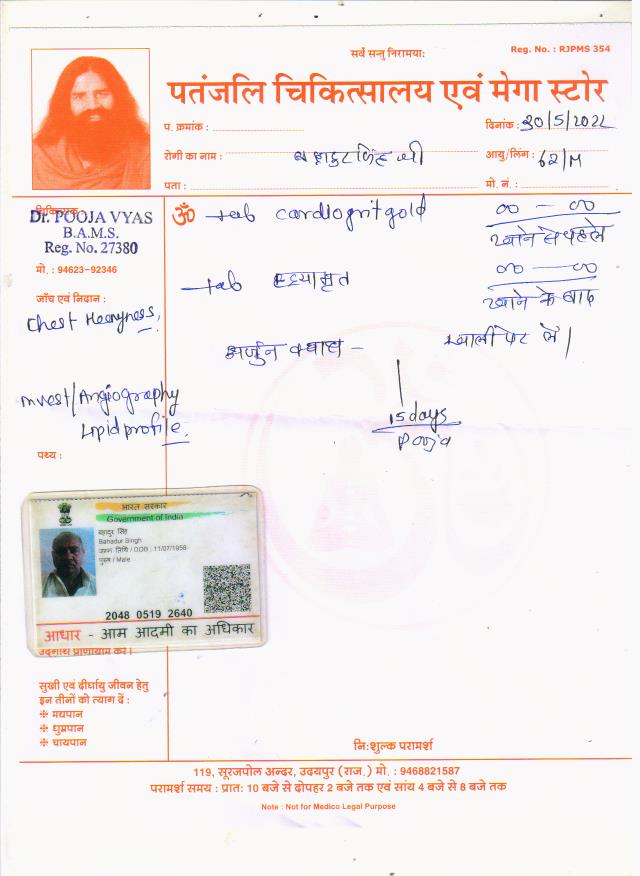 सर्वे सन्तु निरामयाः
Reg. No. : RJPMS 354
पतंजलि चिकित्सालय एवं मेगा स्टोर
प. क्रमांक :
दिनांक : 30/5/2022
रोगी का नाम :
आयु/लिंग : 62/M
पता :
मो. नं. :
चिकित्सक
Dr. POOJA VYAS
B.A.M.S.
Reg. No. 27380
मो. : 94623-92346
जाँच एवं निदान :
Chest Heavyness,
Invest/Angiography
Lipid profile.
पथ्य :
ॐ
tab cardiogrit gold
खाने से पहले
tab हृदयामृत
खाने के बाद
अर्जुन क्वाथ -
खाली पेट लें।
15 days
Pooja
भारत सरकार
Government of India
बहादुर सिंह
Bahadur Singh
जन्म तिथि / DOB : 11/07/1958
पुरुष / Male
2048 0519 2640
आधार - आम आदमी का अधिकार
प्राणायाम करें।
सुखी एवं दीर्घायु जीवन हेतु
इन तीनों को त्याग दें :
❉ मद्यपान
❉ धुम्रपान
❉ चायपान
निःशुल्क परामर्श
119, सूरजपोल अन्दर, उदयपुर (राज.) मो. : 9468821587
परामर्श समय : प्रातः 10 बजे से दोपहर 2 बजे तक एवं सांय 4 बजे से 8 बजे तक
Note : Not for Medico Legal Purpose